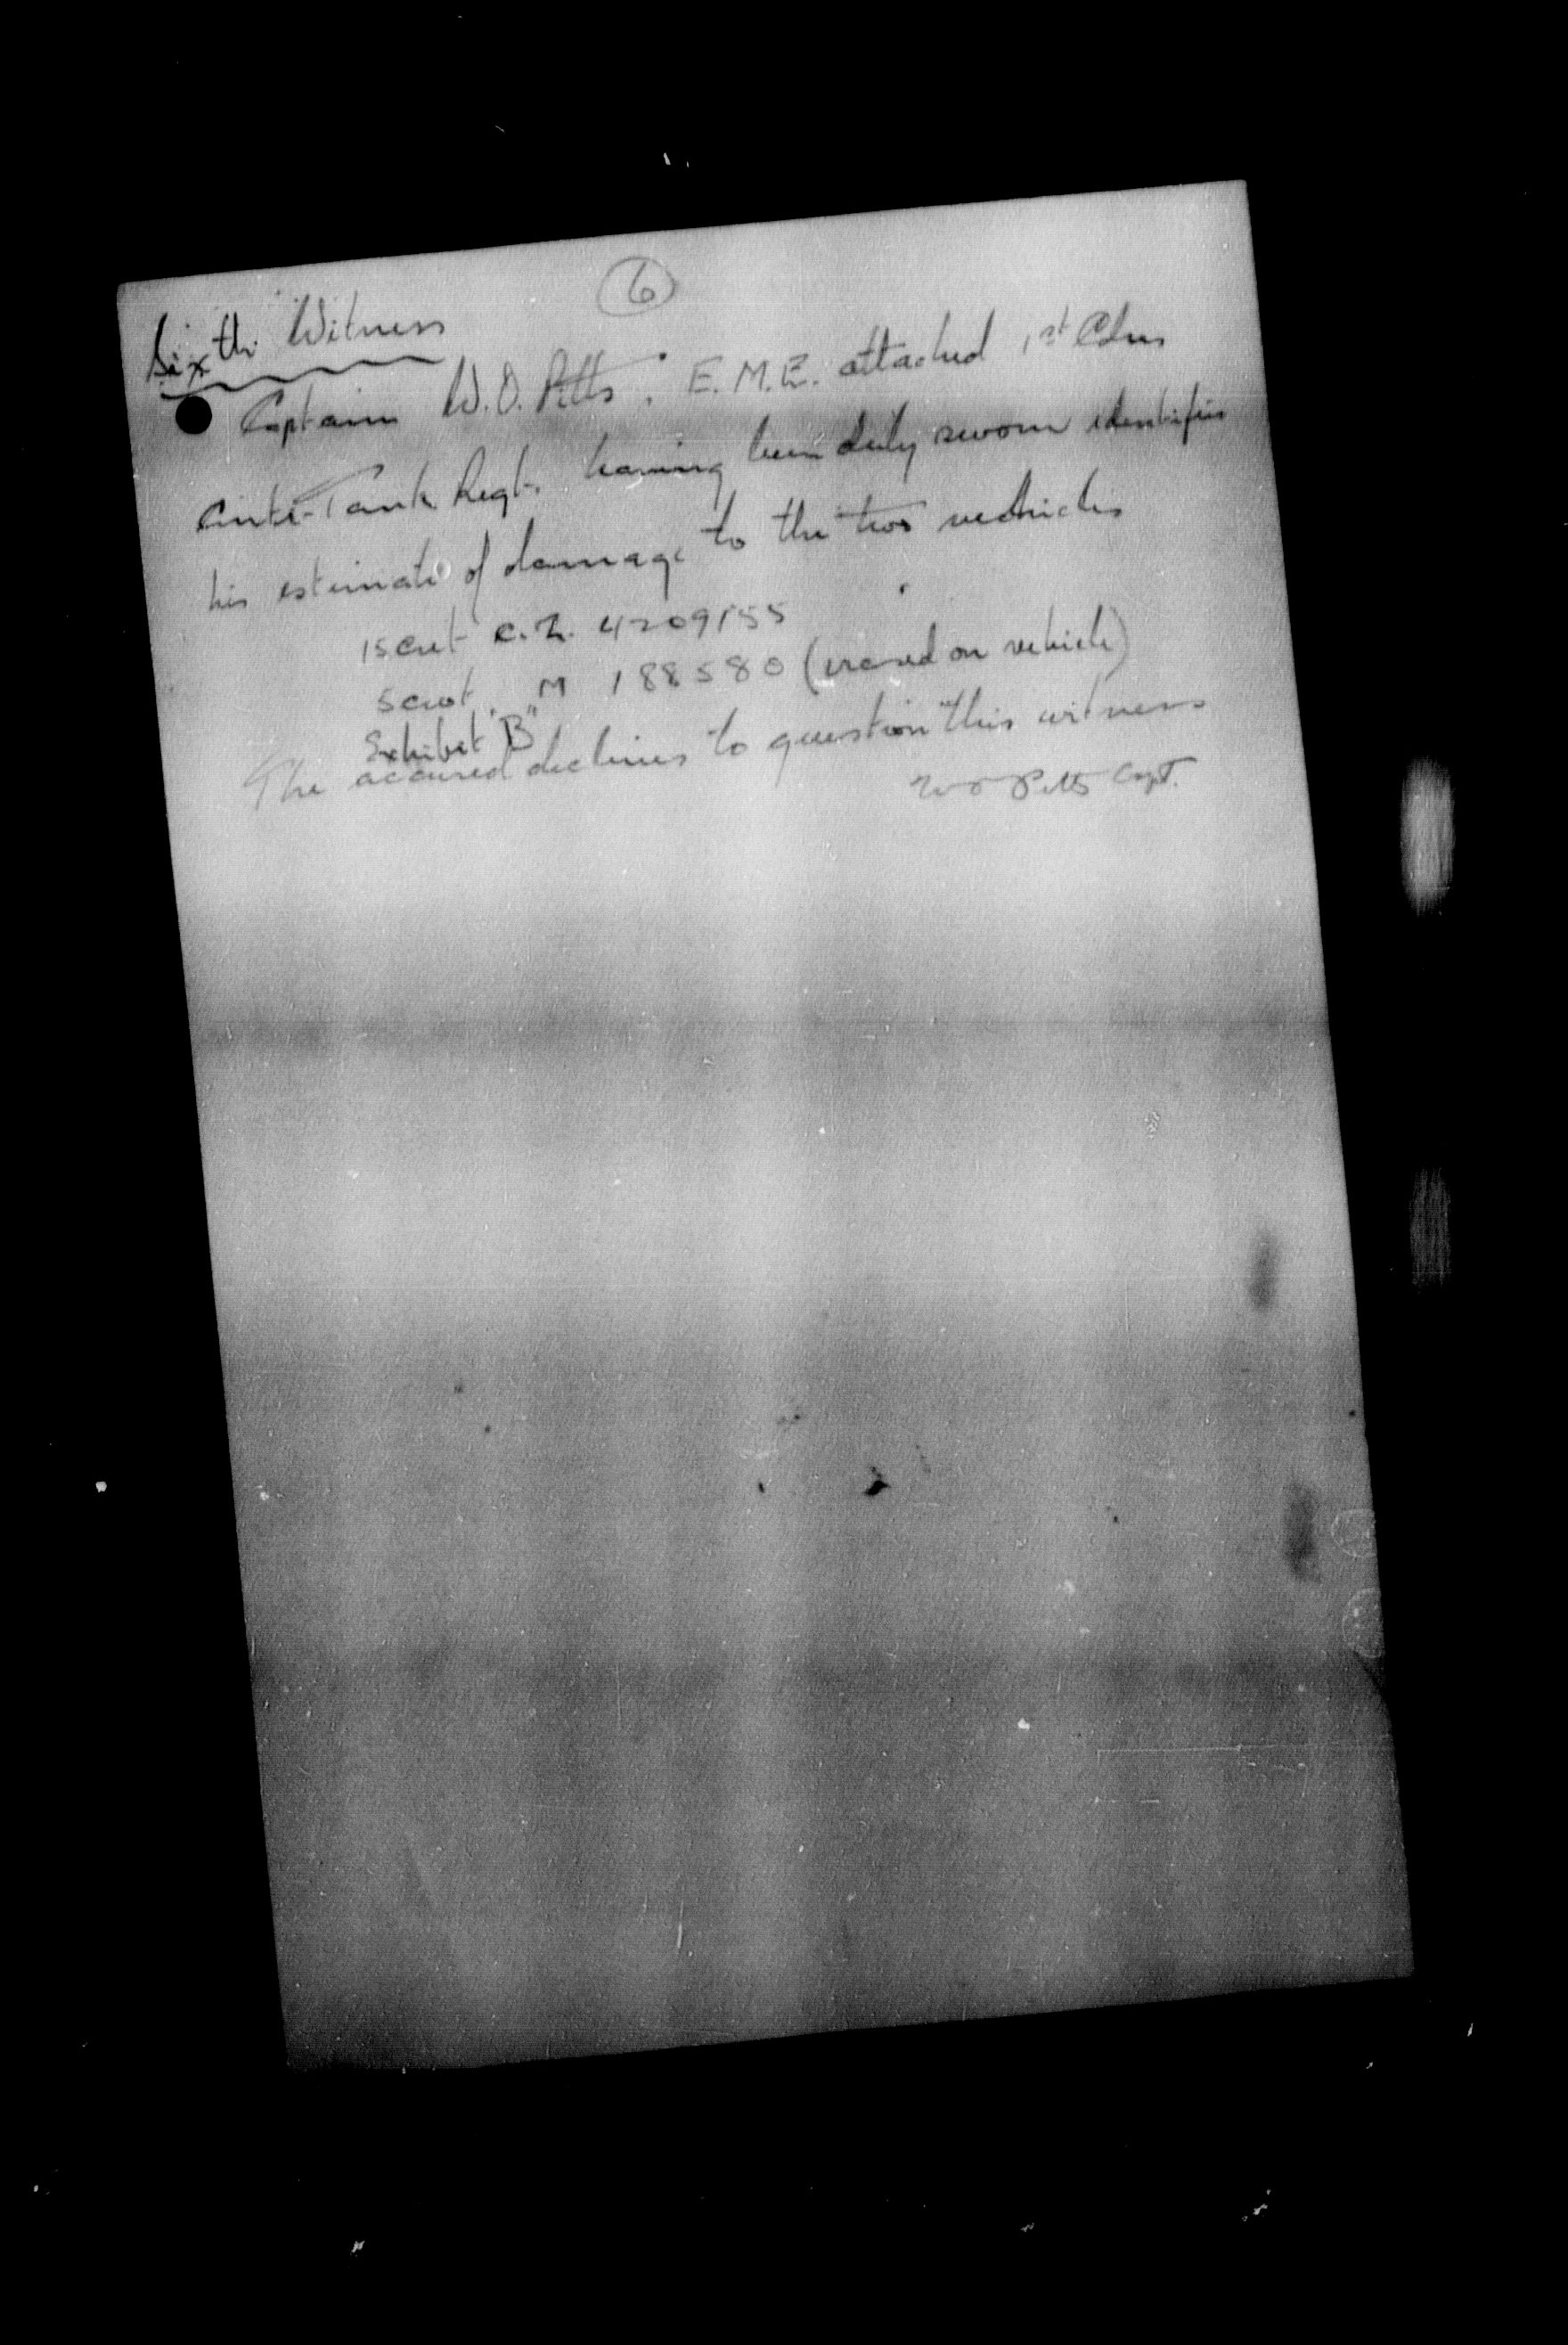 6
Sixth Witness
Captain W.O. Pitts. E.M.E. attached 1st Cdn
Anti-Tank Regt. having been duly sworn identifies
his estimate of damage to the two vehicles
15 cwt C.Z. 4209155
5 cwt. M 188580 (erased on vehicle)
Exhibit "B"
The accused declines to question this witness
W O Pitts Capt.